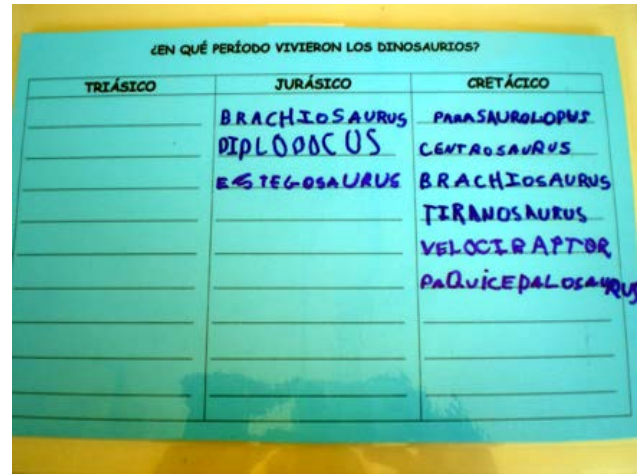 ¿EN QUÉ PERÍODO VIVIERON LOS DINOSAURIOS?
TRIÁSICO JURÁSICO CRETÁCICO
BRACHIOSAURUS PARASAUROLOPUS
DIPLODOCUS CENTROSAURUS
ESTEGOSAURUS BRACHIOSAURUS
TIRANOSAURUS
VELOCIRAPTOR
PAQUICEPALOSAURUS